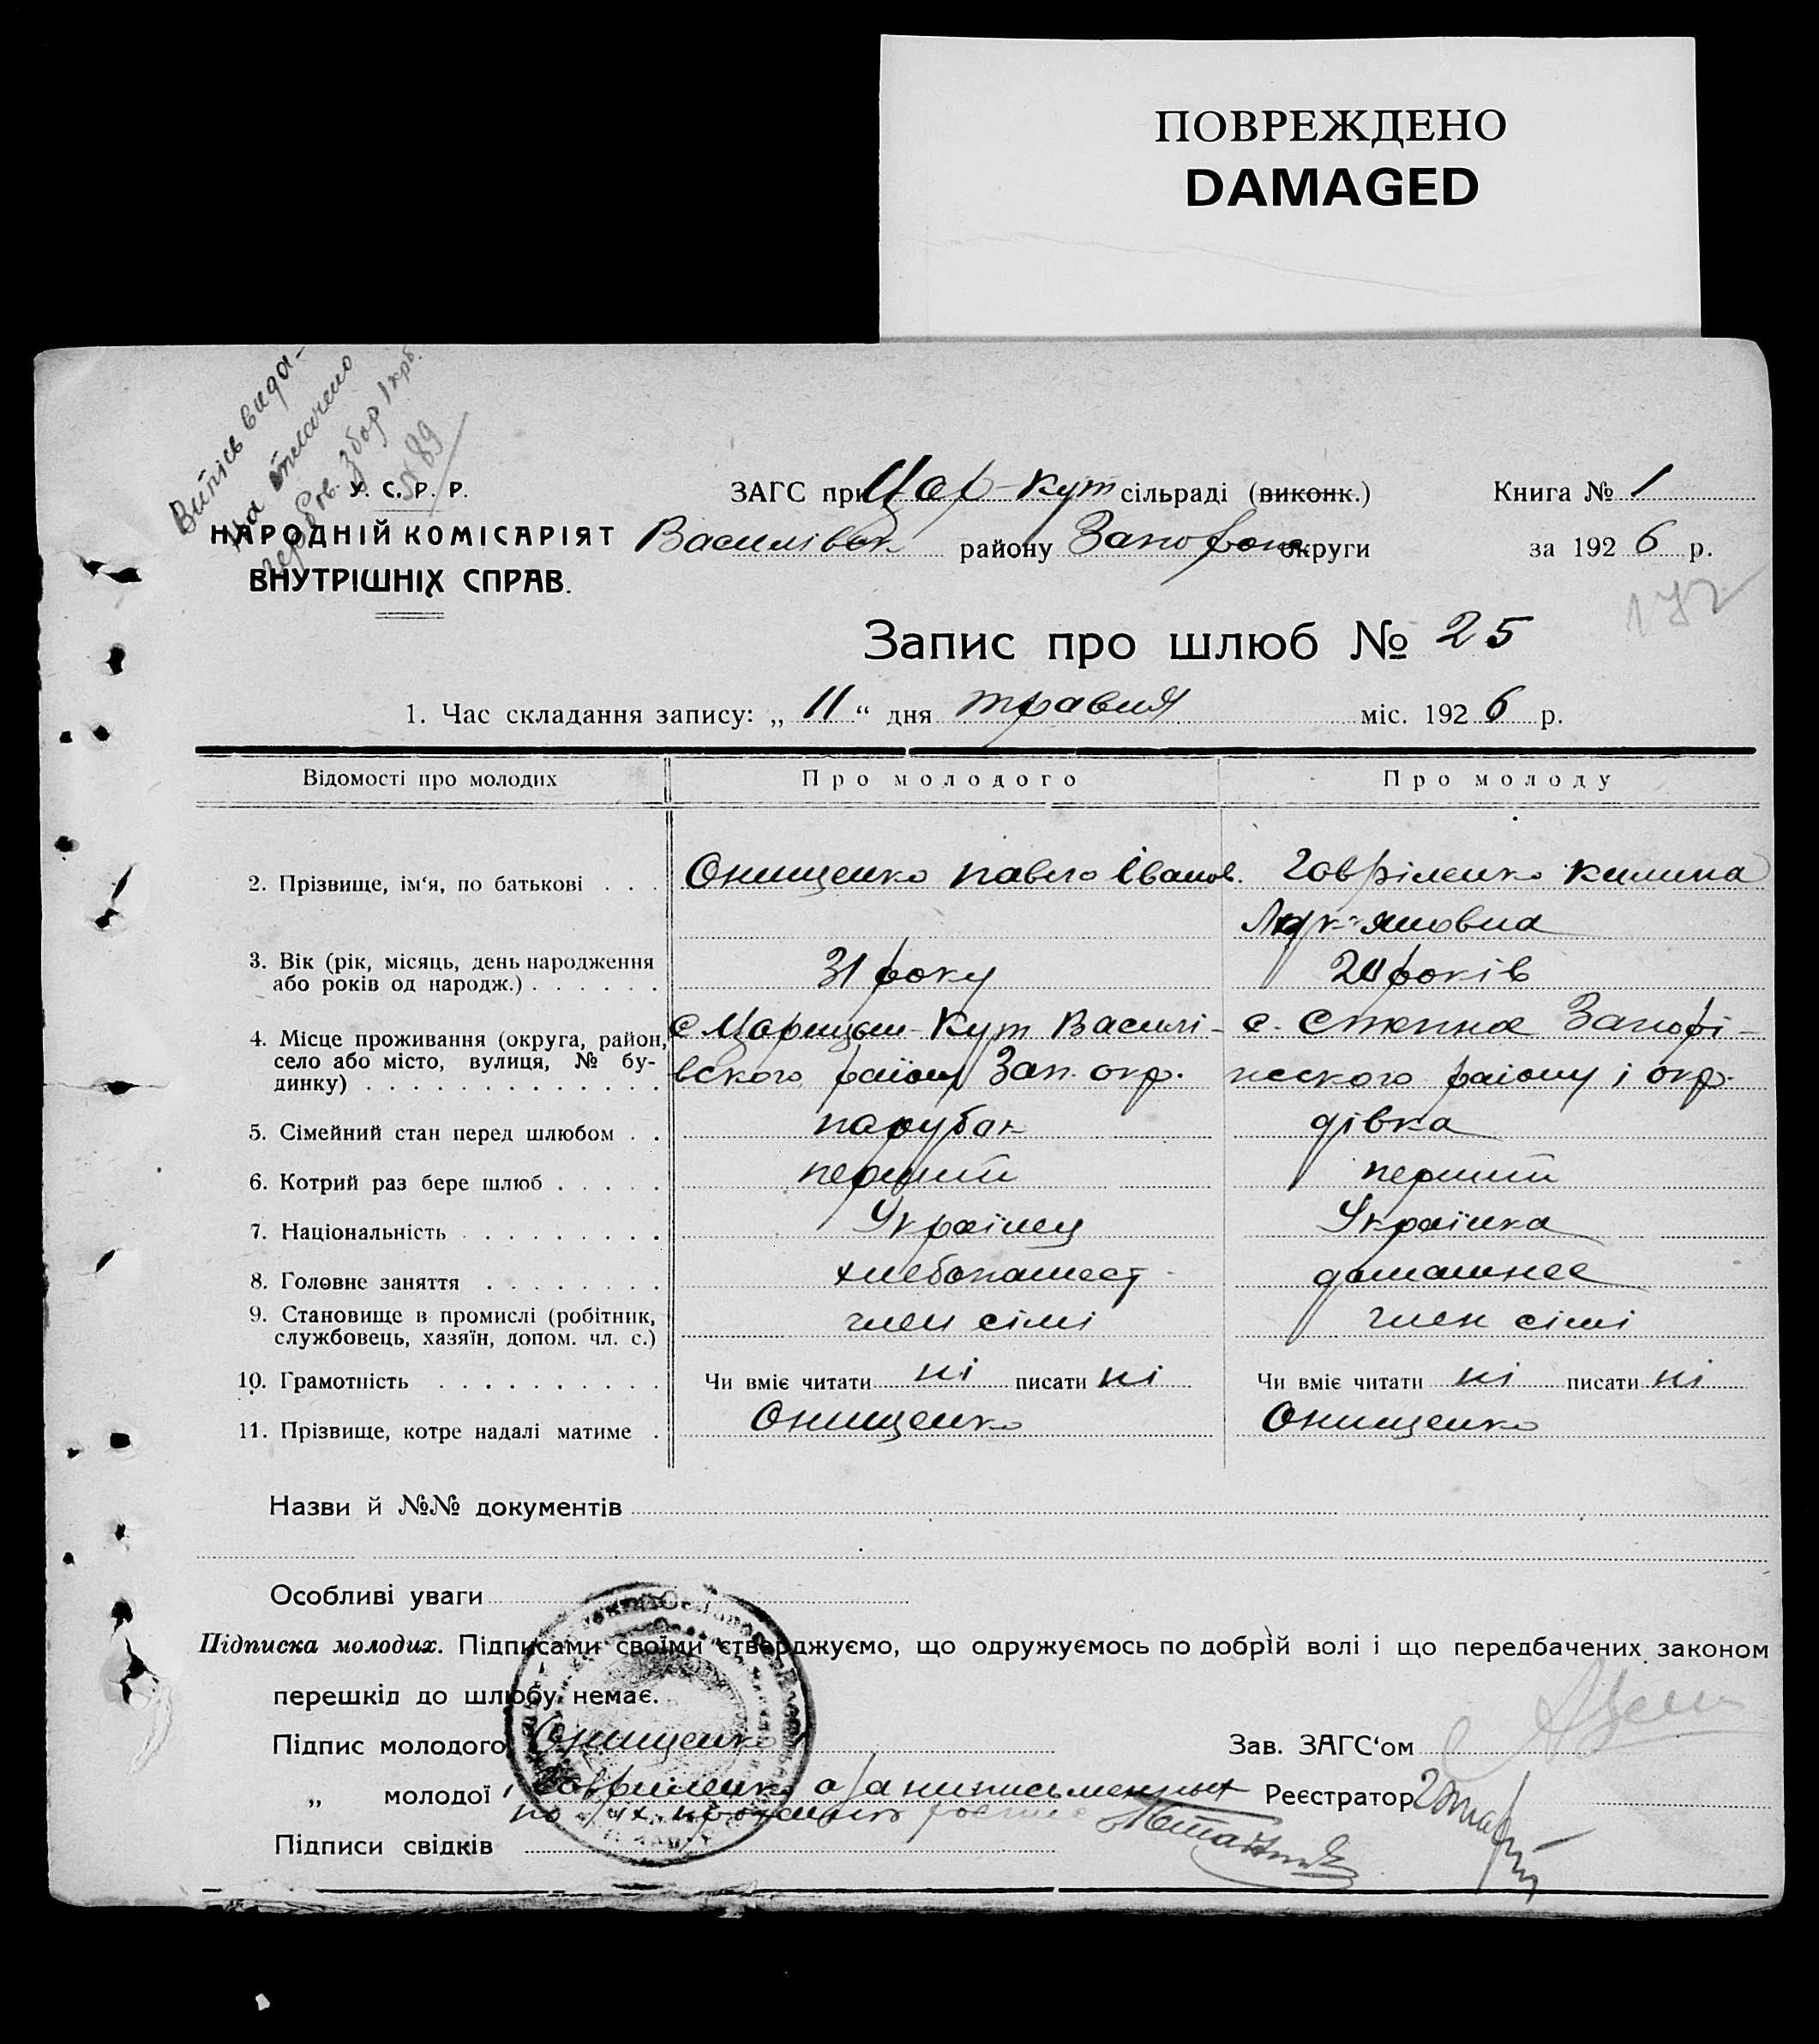 ПОВРЕЖДЕНО
DAMAGED
Випись вида-
на оплачено
гербов. збор 1 крб.
№ 89
У. С. Р. Р.
НАРОДНІЙ КОМІСАРІЯТ
ВНУТРІШНІХ СПРАВ.
ЗАГС при Цар-Кут сільраді (виконк.) Книга № 1
Василівск району Запорожск округи за 1926 р.
172
Запис про шлюб № 25
1. Час складання запису: „ 11 “ дня травня міс. 1926 р.
Відомості про молодих Про молодого Про молоду
2. Прізвище, ім‘я, по батькові . . . Онищенко Павло Іванов. Говріленко Килина
Лук'яновна
3. Вік (рік, місяць, день народження
або років од народж.) . . . . . . 31 року 20 років
4. Місце проживання (округа, район, с Царицин-Кут Василі- с. Степна Запорі-
село або місто, вулиця, № бу-
динку) . . . . . . . . . . . . . вского району Зап. окр. жского району і окр.
5. Сімейний стан перед шлюбом . . парубак дівка
6. Котрий раз бере шлюб . . . . . перший перший
7. Національність . . . . . . . . . Українец Українка
8. Головне заняття . . . . . . . . хлебопашест домашнее
9. Становище в промислі (робітник,
службовець, хазяїн, допом. чл. с.) член сімі член сімі
10. Грамотність . . . . . . . . . . Чи вміє читати ні писати ні Чи вміє читати ні писати ні
11. Прізвище, котре надалі матиме . Онищенко Онищенко
Назви й №№ документів
Особливі уваги
Підписка молодих. Підписами своїми стверджуємо, що одружуємось по добрій волі і що передбачених законом
перешкід до шлюбу немає.
Підпис молодого Онищенко Зав. ЗАГС‘ом
„ молодої Говриленко а за ниписьменных Реєстратор
по их прозбию роспис
Підписи свідків